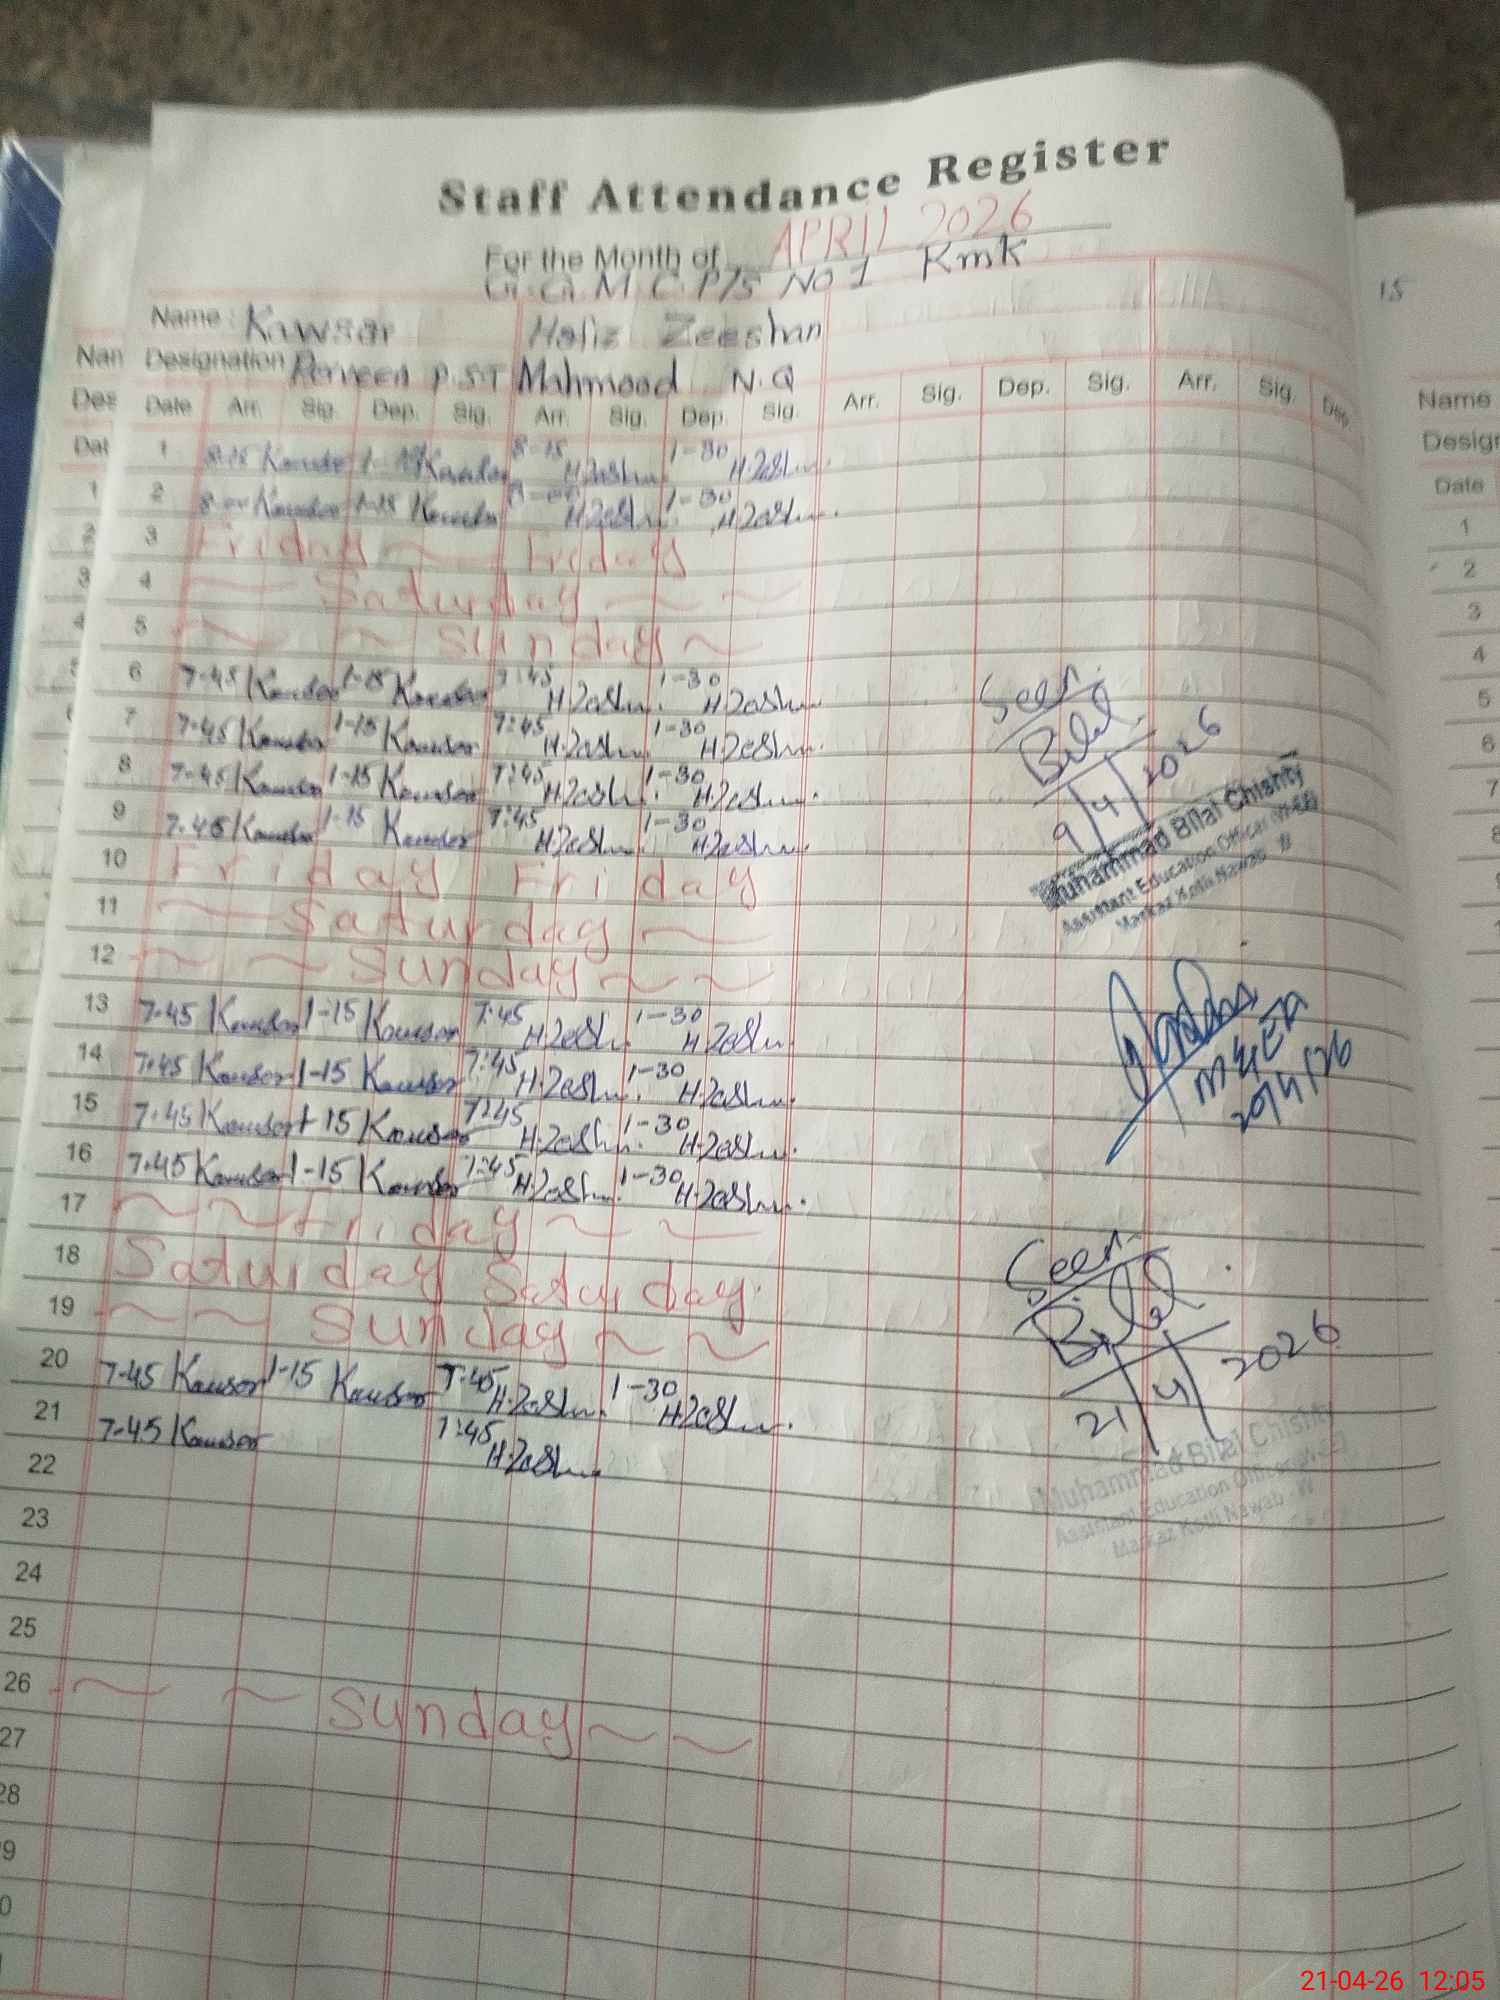 Staff Attendance Register
For the Month of APRIL 2026
G.G.M.C.P/S No 1 Kmk
15
Name : Kawsar Hafiz Zeeshan
Nan Designation Perveen P.S.T Mahmood N.Q
Des Date Arr. Sig. Dep. Sig. Arr. Sig. Dep. Sig. Arr. Sig. Dep. Sig. Arr. Sig. Dep. Name
Dat Desigr
Date
1 8-15 Kawsar Kawsar 8-15 H.Zeshan 1-30 H.Zeshan
2 Kawsar 1-15 Kawsar 8-00 H.Zeshan 1-30 H.Zeshan
3 Friday ~ Friday
4 ~ Saturday ~ ~
5 ~ ~ Sunday ~
6 7-45 Kawsar 1-15 Kawsar 7:45 H.Zeshan 1-30 H.Zeshan
7 7-45 Kawsar 1-15 Kawsar 7:45 H.Zeshan 1-30 H.Zeshan
8 7-45 Kawsar 1-15 Kawsar 7:45 H.Zeshan 1-30 H.Zeshan
9 7-45 Kawsar 1-15 Kawsar 7:45 H.Zeshan 1-30 H.Zeshan
10 Friday Friday
11 ~ Saturday ~
12 ~ ~ Sunday ~ ~
13 7-45 Kawsar 1-15 Kawsar 7:45 H.Zeshan 1-30 H.Zeshan
14 7:45 Kawsar 1-15 Kawsar 7:45 H.Zeshan 1-30 H.Zeshan
15 7-45 Kawsar 1-15 Kawsar 7:45 H.Zeshan 1-30 H.Zeshan
16 7-45 Kawsar 1-15 Kawsar 7:45 H.Zeshan 1-30 H.Zeshan
17 ~ ~ Friday ~ ~
18 Saturday Saturday
19 ~ ~ Sunday ~ ~
20 7-45 Kawsar 1-15 Kawsar 7:45 H.Zeshan 1-30 H.Zeshan
21 7-45 Kawsar 7:45 H.Zeshan
22
23
24
25
26 ~ ~ Sunday ~ ~
27
28
9
0
Seen
Bilal
9/4/2026
Muhammad Bilal Chishty
Assistant Education Officer (W-EE)
Markaz Kotli Nawab
20/4/26
Seen
Bilal
21/4/2026
Muhammad Bilal Chishty
Assistant Education Officer
Markaz Kotli Nawab
21-04-26 12:05